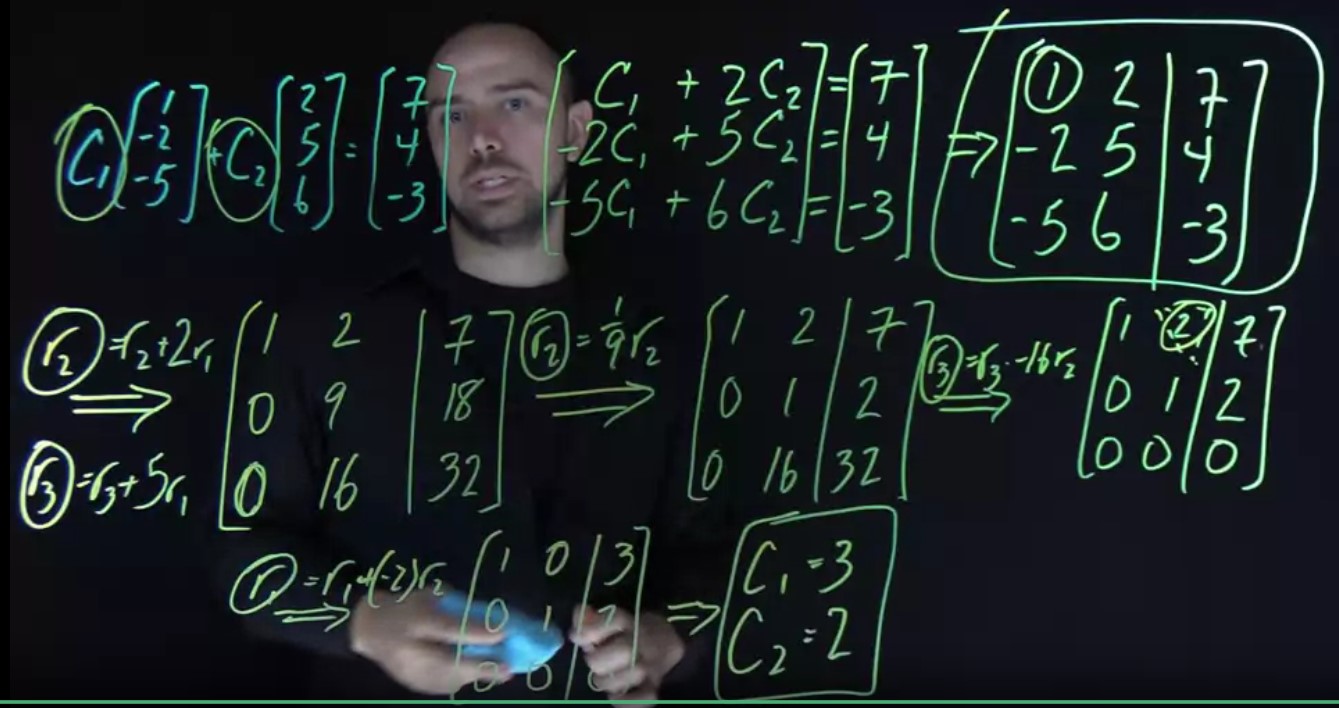 C₁ [1 -2 -5] + C₂ [2 5 6] = [7 4 -3]
[C₁ + 2C₂ -2C₁ + 5C₂ -5C₁ + 6C₂] = = = [7 4 -3]
⇒ [1 2 | 7
-2 5 | 4
-5 6 | -3]
r₂ = r₂ + 2r₁
⇒
r₃ = r₃ + 5r₁
[1 2 | 7
0 9 | 18
0 16 | 32]
r₂ = 1/9 r₂
⇒
[1 2 | 7
0 1 | 2
0 16 | 32]
r₃ = r₃ - 16r₂
⇒
[1 2 | 7
0 1 | 2
0 0 | 0]
r₁ = r₁ + (-2)r₂
⇒
[1 0 | 3
0 1 |
0 0 | ]
⇒
C₁ = 3
C₂ = 2